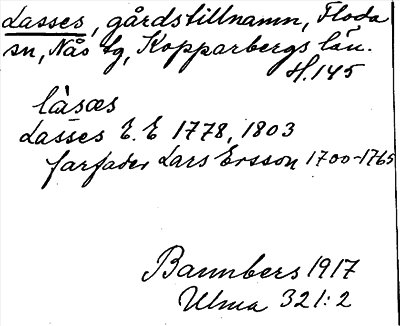 Lasses, gårdstillnamn, Floda
sn, Nås tg, Kopparbergs län.
H.145
là̀sæs
Lasses E. E 1778, 1803
farfader Lars Ersson 1700-1765
Bannbers 1917
Ulma 321:2